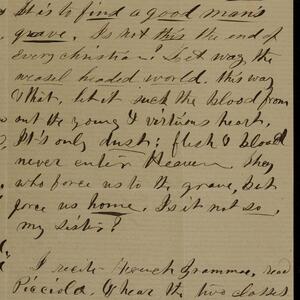 It is to find a good man's
grave. Is not this the end of
every christian? Let wag the
weasel headed world, this way
& that, let it suck the blood from
out the young & virtuous heart,
It's only dust; flesh & blood
never enter Heaven. They
who force us to the grave, but
force us home. Is it not so,
my sister?
I recite French Grammar, read
Picciola. & hear the two classes